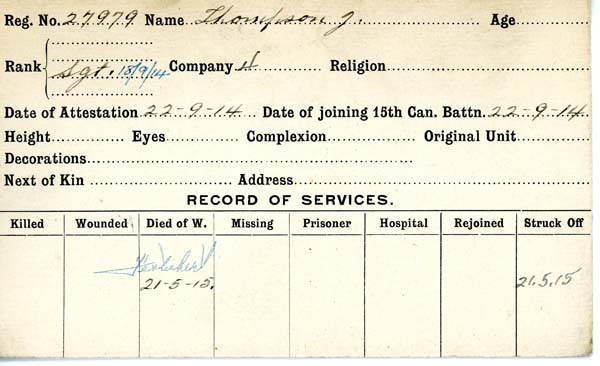 Reg. No. 27979 Name Thompson J. Age
Rank Sgt. 18/9/14 Company H Religion
Date of Attestation 22-9-14 Date of joining 15th Can. Battn. 22-9-14
Height Eyes Complexion Original Unit
Decorations
Next of Kin Address
RECORD OF SERVICES.
Killed Wounded Died of W. Missing Prisoner Hospital Rejoined Struck Off
21-5-15. 21.5.15